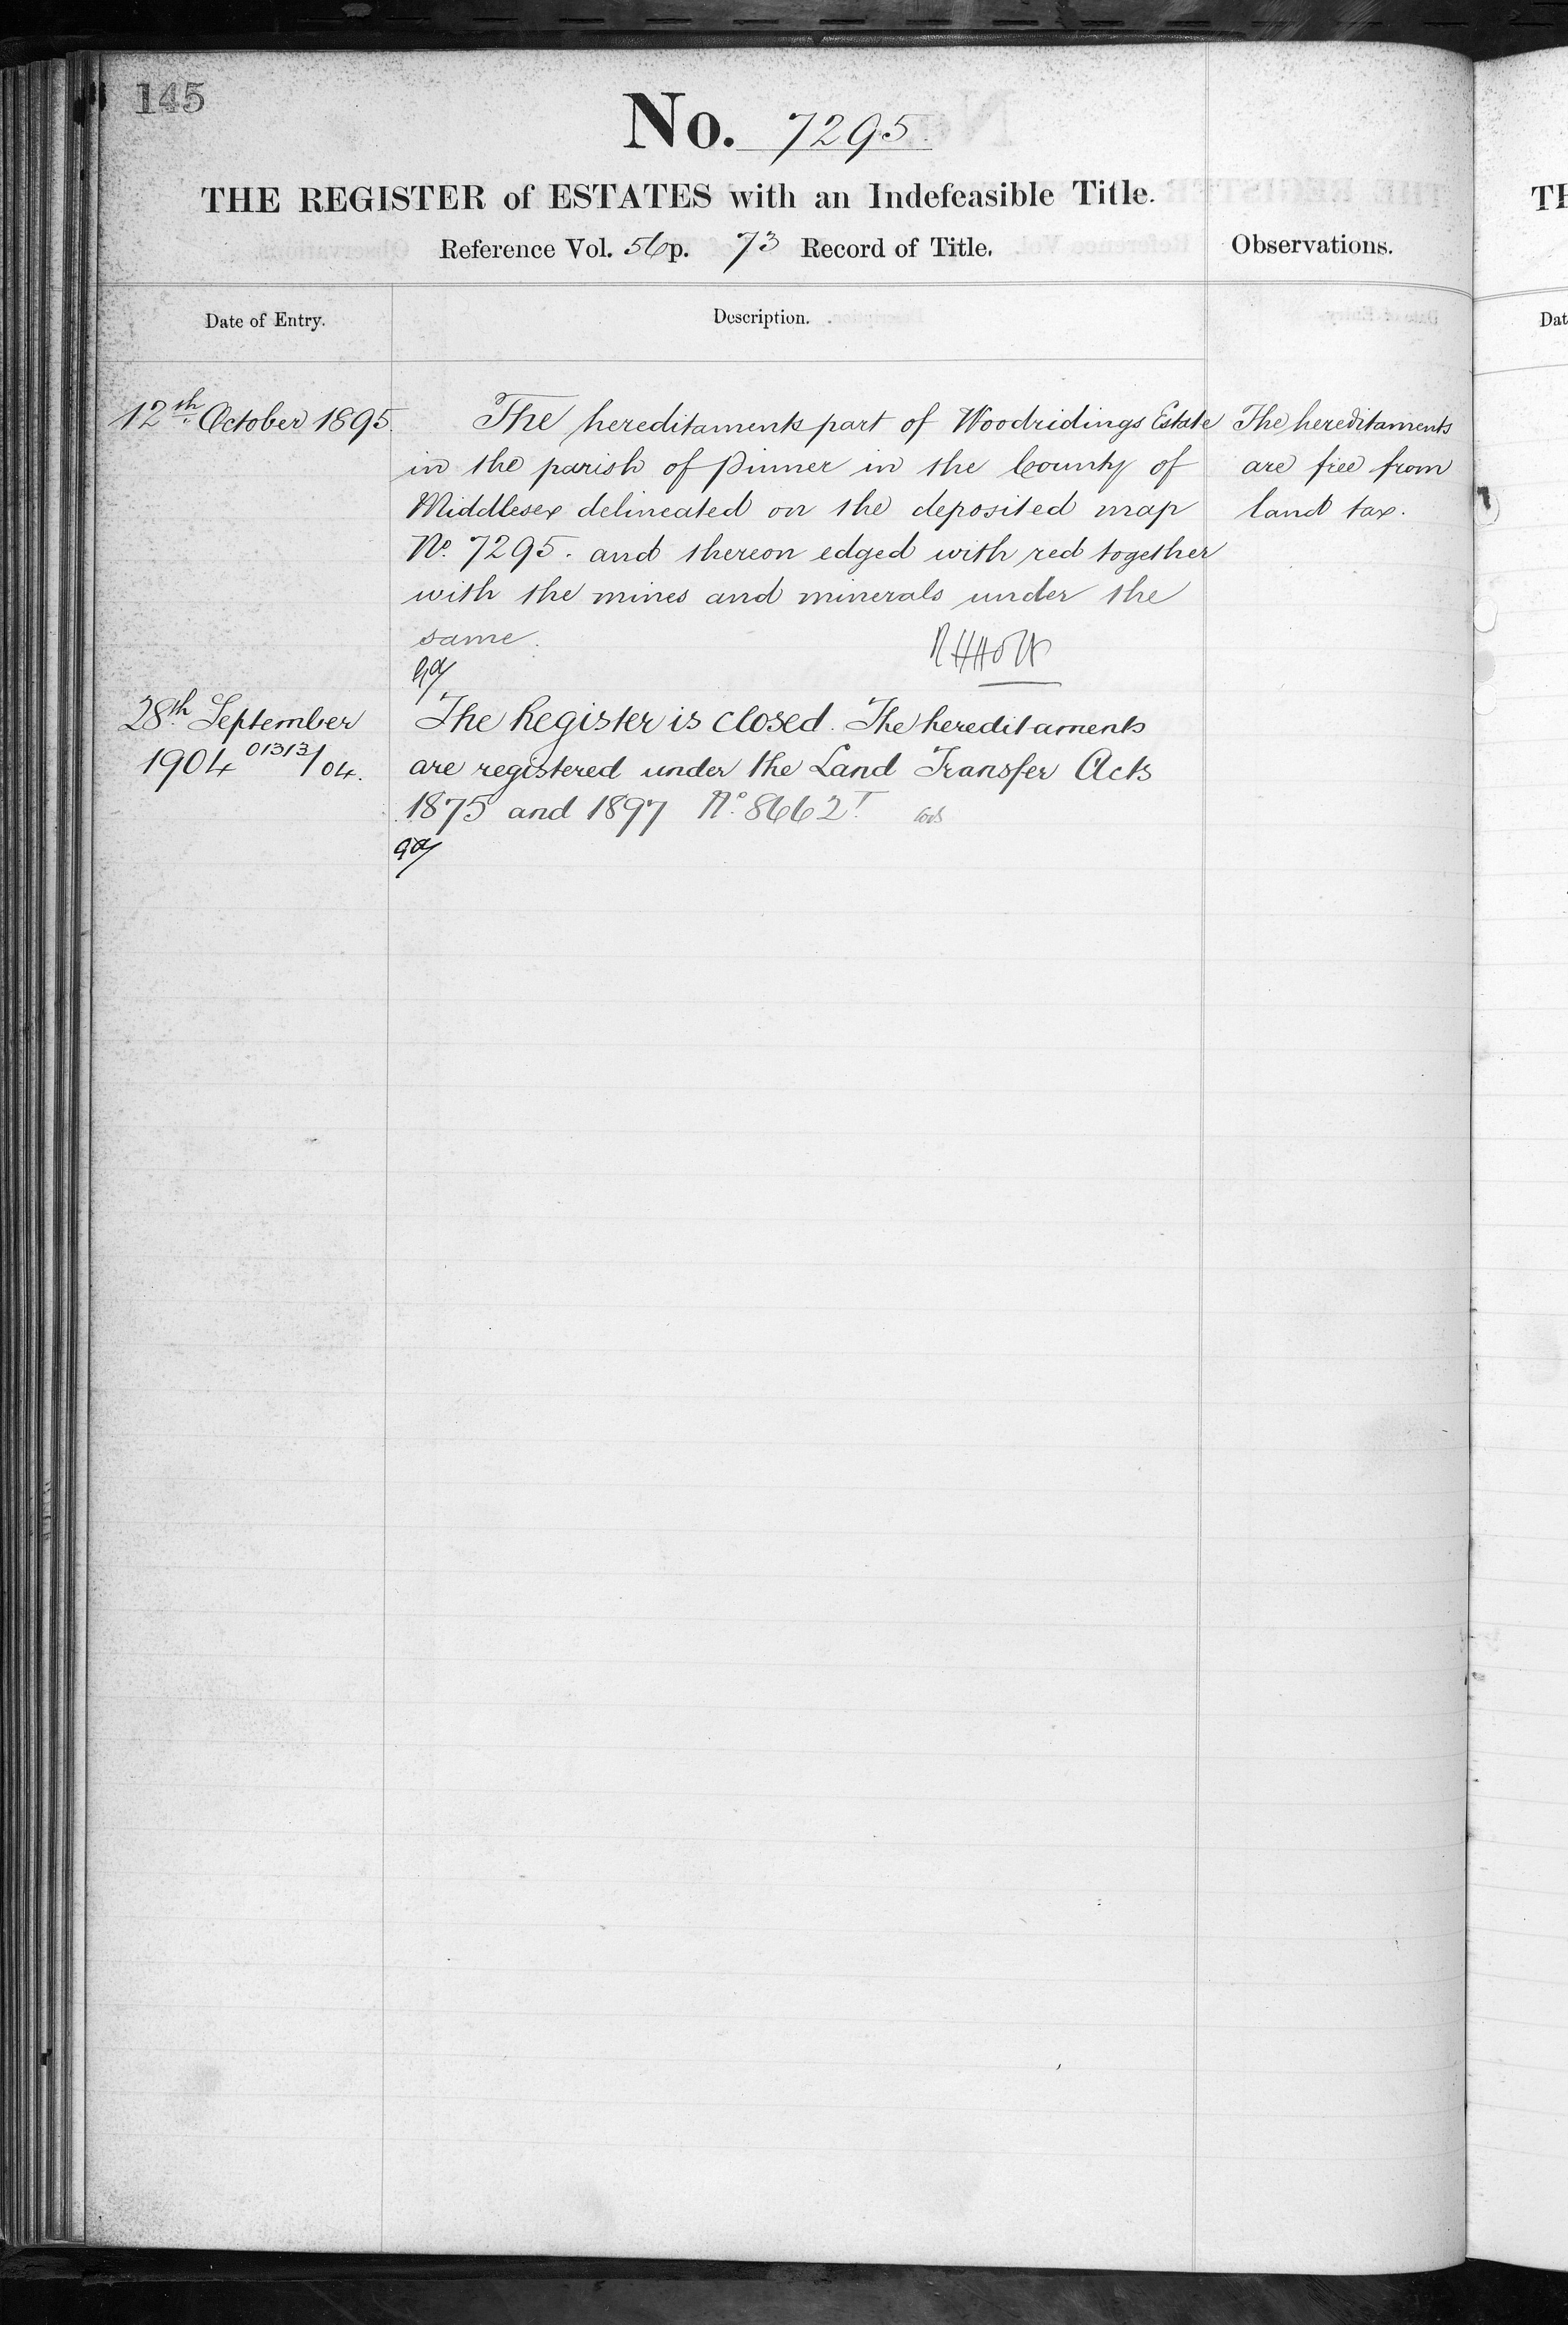 145
No. 7295
THE REGISTER of ESTATES with an Indefeasible Title.
Reference Vol. 56 p. 73 Record of Title.
Observations.
Date of Entry.
Description.
12th October 1895.
The hereditaments part of Woodridings Estate
in the parish of Pinner in the County of
Middlesex delineated on the deposited map
No. 7295. and thereon edged with red together
with the mines and minerals under the
same.
The hereditaments
are free from
land tax.
RHHolt
28th September
1904 01313/04.
The Register is closed. The hereditaments
are registered under the Land Transfer Acts
1875 and 1897 No. 8662
TH
Dat